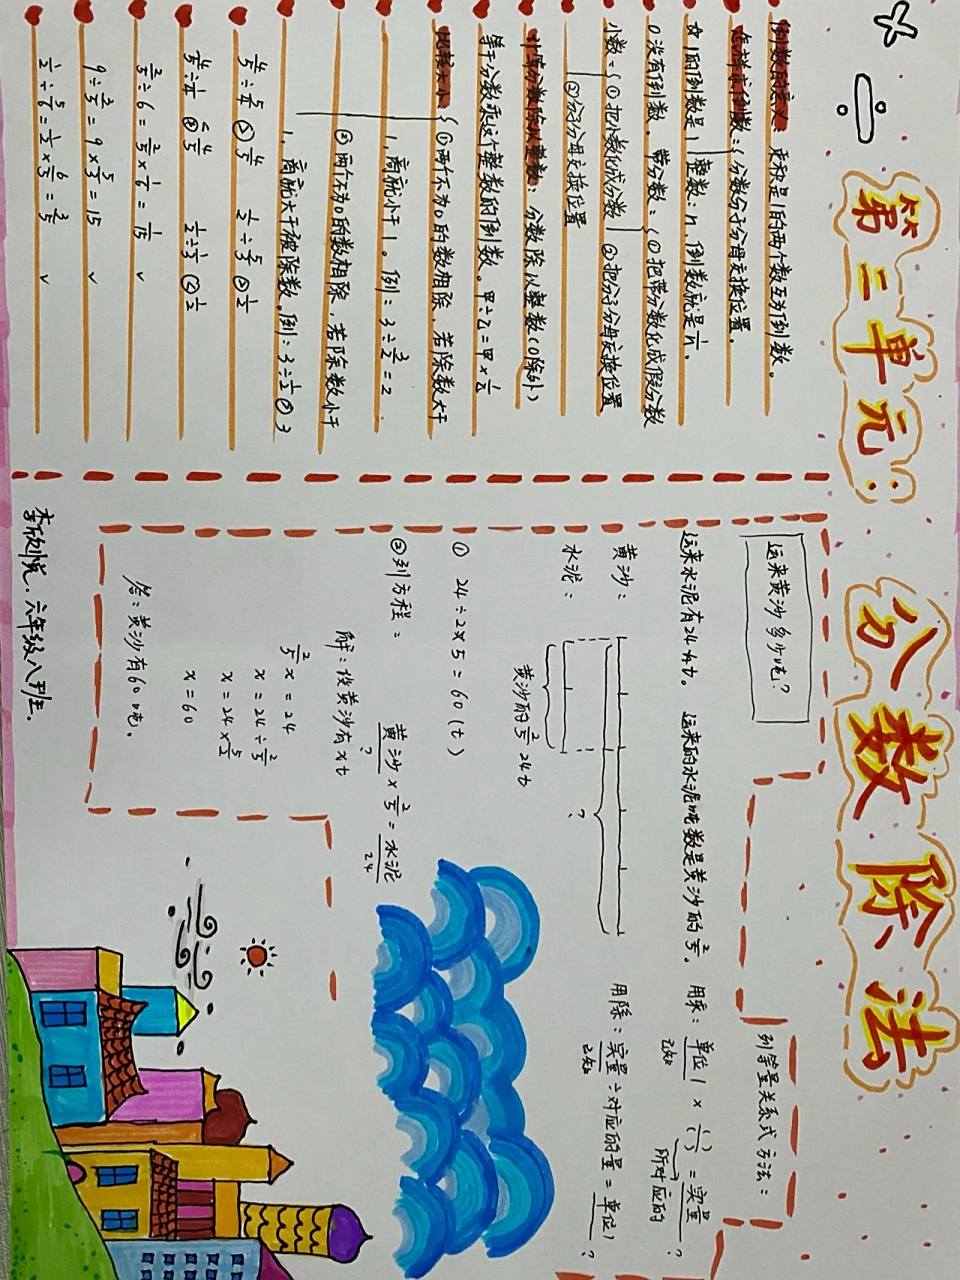 第三单元: 分数除法
倒数的意义: 乘积是1的两个数互为倒数。
怎样求倒数: ①分数:分子分母交换位置。
☆1的倒数是1 整数: n, 倒数就是1/n。
0没有倒数. 带分数:①把带分数化成假分数
小数:①把小数化成分数 ②把分子分母交换位置
②分子分母交换位置
计算分数除以整数: 分数除以整数(0除外)
等于分数乘这个整数的倒数。甲÷乙=甲×1/乙
比较大小 ①两个不为0的数相除、若除数大于
1, 商就小于1。例: 3÷3/2=2
②两个不为0的数相除, 若除数小于
1, 商就大于被除数。例: 3÷1/2>3
4/5÷5/4<4/5 1/2÷5/4<1/2
4/5÷1/4>4/5 1/2÷1/3>1/2
2/5÷6=2/5×1/6=1/15 ✓
9÷3/5=9×5/3=15 ✓
1/2÷5/6=1/2×6/5=3/5 ✓
运来黄沙多少吨?
运来水泥有24吨t。 运来的水泥吨数是黄沙的2/5。
黄沙:
水泥:
?
黄沙的2/5 24t
① 24÷2×5=60(t)
②列方程: 黄沙×2/5=水泥
? 24
解:设黄沙有xt
2/5x=24
x=24÷2/5
x=24×5/2
x=60
答:黄沙有60吨。
列等量关系式方法:
用乘: 单位1×( )/( )=实量
已知 所对应的 ?
用除: 实量÷对应的量=单位1
已知 ?
李欣悦. 六年级八班.